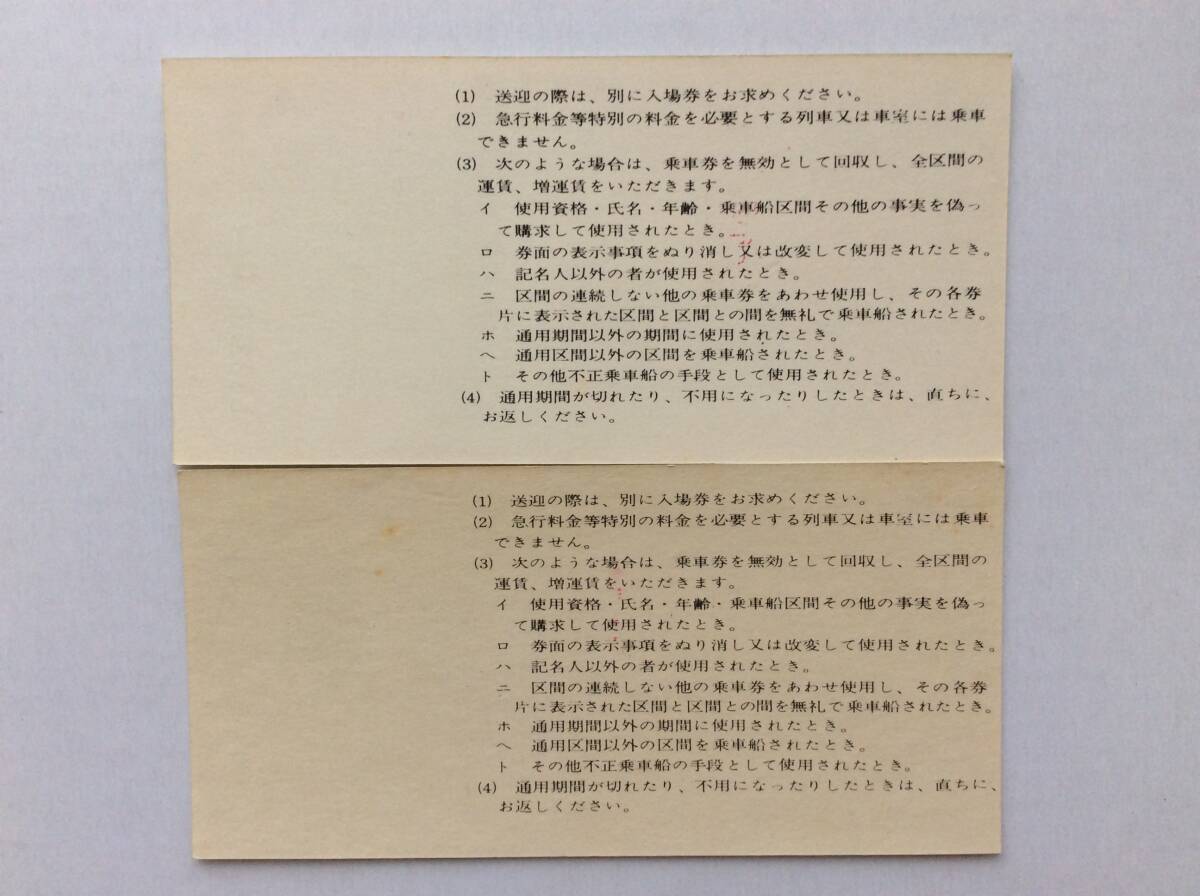 (1) 送迎の際は、別に入場券をお求めください。
(2) 急行料金等特別の料金を必要とする列車又は車室には乗車
できません。
(3) 次のような場合は、乗車券を無効として回収し、全区間の
運賃、増運賃をいただきます。
イ 使用資格・氏名・年齢・乗車船区間その他の事実を偽っ
て購求して使用されたとき。
ロ 券面の表示事項をぬり消し又は改変して使用されたとき。
ハ 記名人以外の者が使用されたとき。
ニ 区間の連続しない他の乗車券をあわせ使用し、その各券
片に表示された区間と区間との間を無札で乗車船されたとき。
ホ 通用期間以外の期間に使用されたとき。
ヘ 通用区間以外の区間を乗車船されたとき。
ト その他不正乗車船の手段として使用されたとき。
(4) 通用期間が切れたり、不用になったりしたときは、直ちに、
お返しください。
(1) 送迎の際は、別に入場券をお求めください。
(2) 急行料金等特別の料金を必要とする列車又は車室には乗車
できません。
(3) 次のような場合は、乗車券を無効として回収し、全区間の
運賃、増運賃をいただきます。
イ 使用資格・氏名・年齢・乗車船区間その他の事実を偽っ
て購求して使用されたとき。
ロ 券面の表示事項をぬり消し又は改変して使用されたとき。
ハ 記名人以外の者が使用されたとき。
ニ 区間の連続しない他の乗車券をあわせ使用し、その各券
片に表示された区間と区間との間を無札で乗車船されたとき。
ホ 通用期間以外の期間に使用されたとき。
ヘ 通用区間以外の区間を乗車船されたとき。
ト その他不正乗車船の手段として使用されたとき。
(4) 通用期間が切れたり、不用になったりしたときは、直ちに、
お返しください。